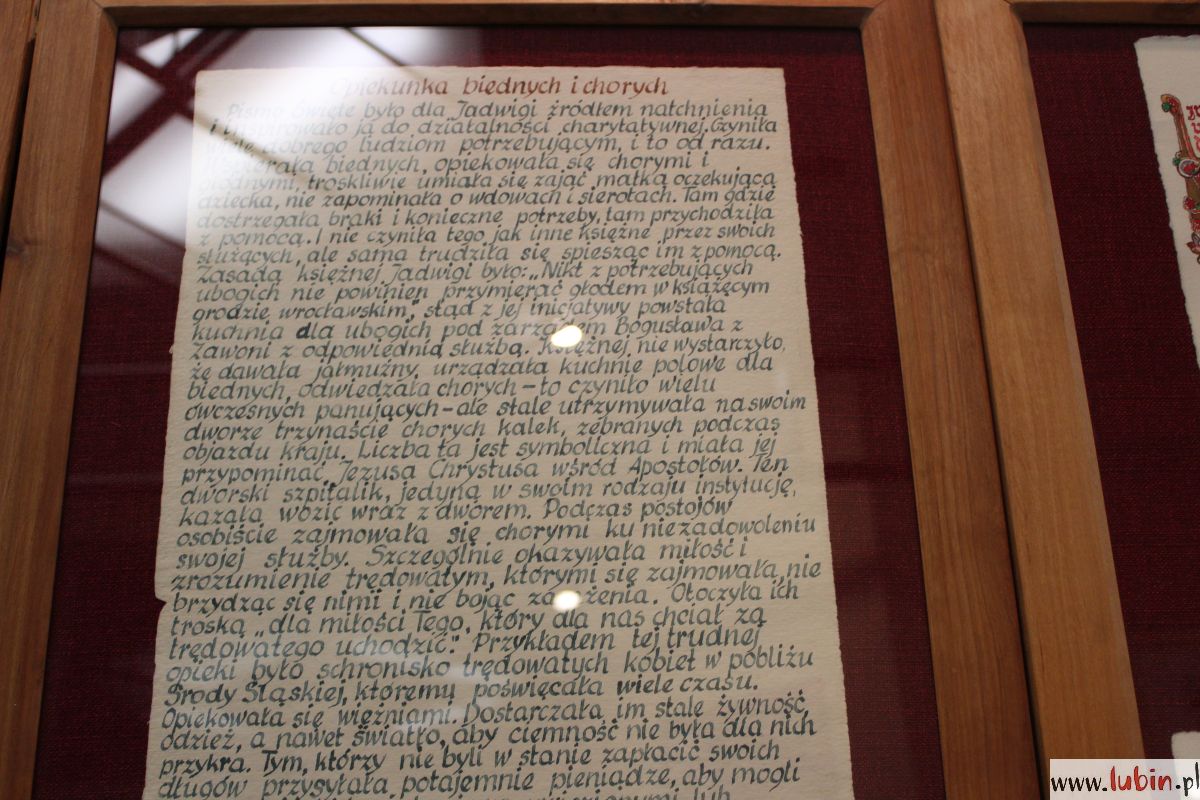 Opiekunka biednych i chorych
Pismo Święte było dla Jadwigi źródłem natchnienia
i inspirowało ją do działalności charytatywnej. Czyniła
wiele dobrego ludziom potrzebującym, i to od razu.
Wspierała biednych, opiekowała się chorymi i
głodnymi, troskliwie umiała się zająć matką oczekującą
dziecka, nie zapominała o wdowach i sierotach. Tam gdzie
dostrzegała braki i konieczne potrzeby, tam przychodziła
z pomocą. I nie czyniła tego jak inne księżne przez swoich
służących, ale sama trudziła się spiesząc im z pomocą.
Zasadą księżnej Jadwigi było: „Nikt z potrzebujących
ubogich nie powinien przymierać głodem w książęcym
grodzie wrocławskim", stąd z jej inicjatywy powstała
kuchnia dla ubogich pod zarządem Bogusława z
Zawoni z odpowiednią służbą. Księżnej nie wystarczyło,
że dawała jałmużny, urządzała kuchnie polowe dla
biednych, odwiedzała chorych – to czyniło wielu
ówczesnych panujących – ale stale utrzymywała na swoim
dworze trzynaście chorych kalek, zebranych podczas
objazdu kraju. Liczba ta jest symboliczna i miała jej
przypominać Jezusa Chrystusa wśród Apostołów. Ten
dworski szpitalik, jedyną w swoim rodzaju instytucję,
kazała wozić wraz z dworem. Podczas postojów
osobiście zajmowała się chorymi ku niezadowoleniu
swojej służby. Szczególnie okazywała miłość i
zrozumienie trędowatym, którymi się zajmowała, nie
brzydząc się nimi i nie bojąc zarażenia. Otoczyła ich
troską „dla miłości Tego, który dla nas chciał za
trędowatego uchodzić". Przykładem tej trudnej
opieki było schronisko trędowatych kobiet w pobliżu
Środy Śląskiej, któremu poświęcała wiele czasu.
Opiekowała się więźniami. Dostarczała im stale żywność,
odzież, a nawet światło, aby ciemność nie była dla nich
przykra. Tym, którzy nie byli w stanie zapłacić swoich
długów przysyłała potajemnie pieniądze, aby mogli
lub
www.lubin.pl